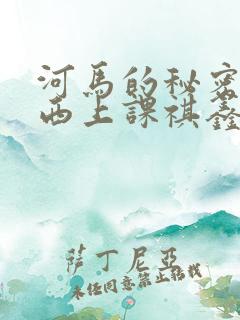 河馬的秘密
西上課祺鑫
薩丁尼亞
未经同意禁止转载